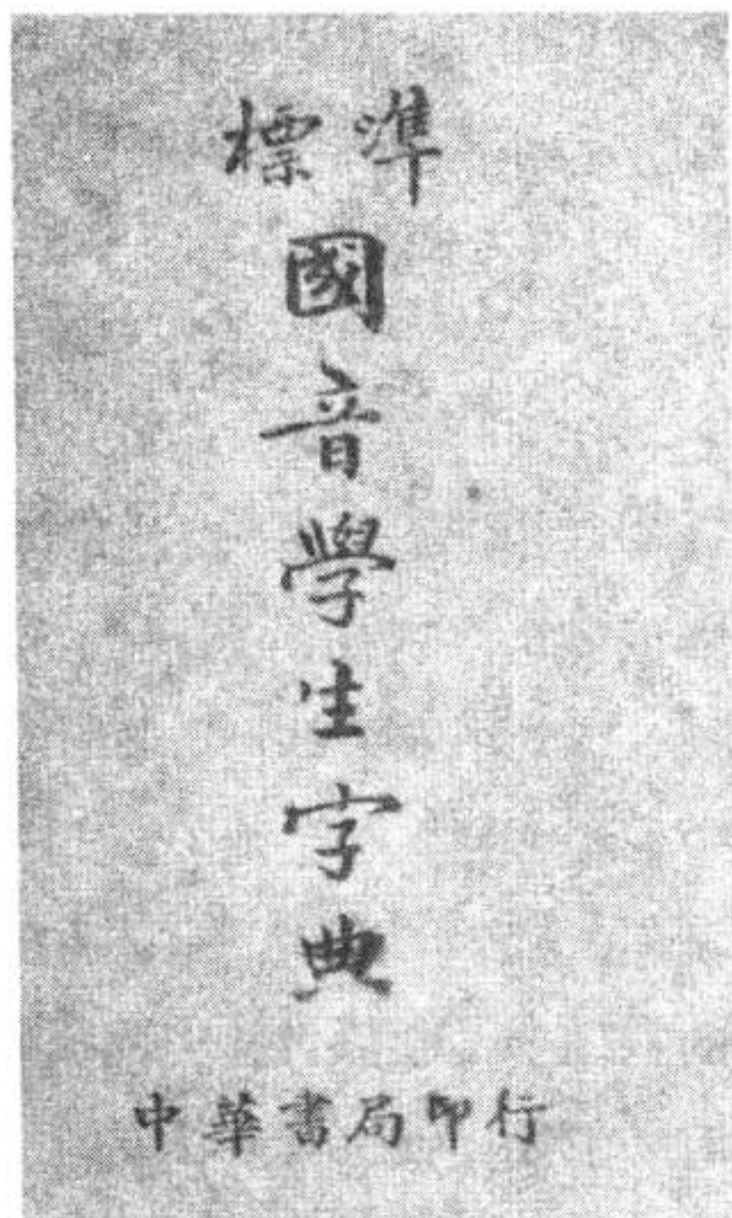 標準
國音學生字典
中華書局印行